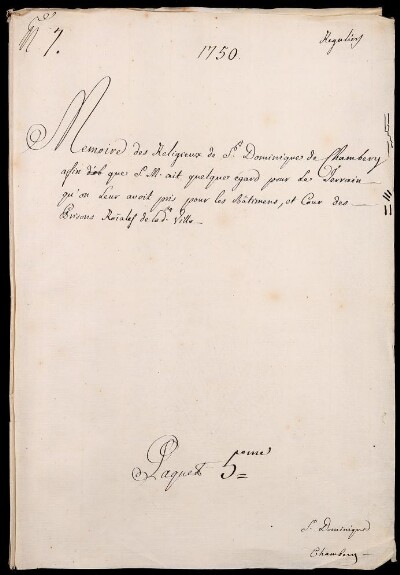 N.º 7.
Reguliers
1750.
Memoire des Religieux de S.t Dominique de Chambery
afin d'ob que S. M. ait quelque egard pour le Terrain
qu'on leur avoit pris pour les Bâtimens, et Cour des
Prisons Roïales de lad.te Ville
Paquet 5.eme
S.t Dominique
Chambery